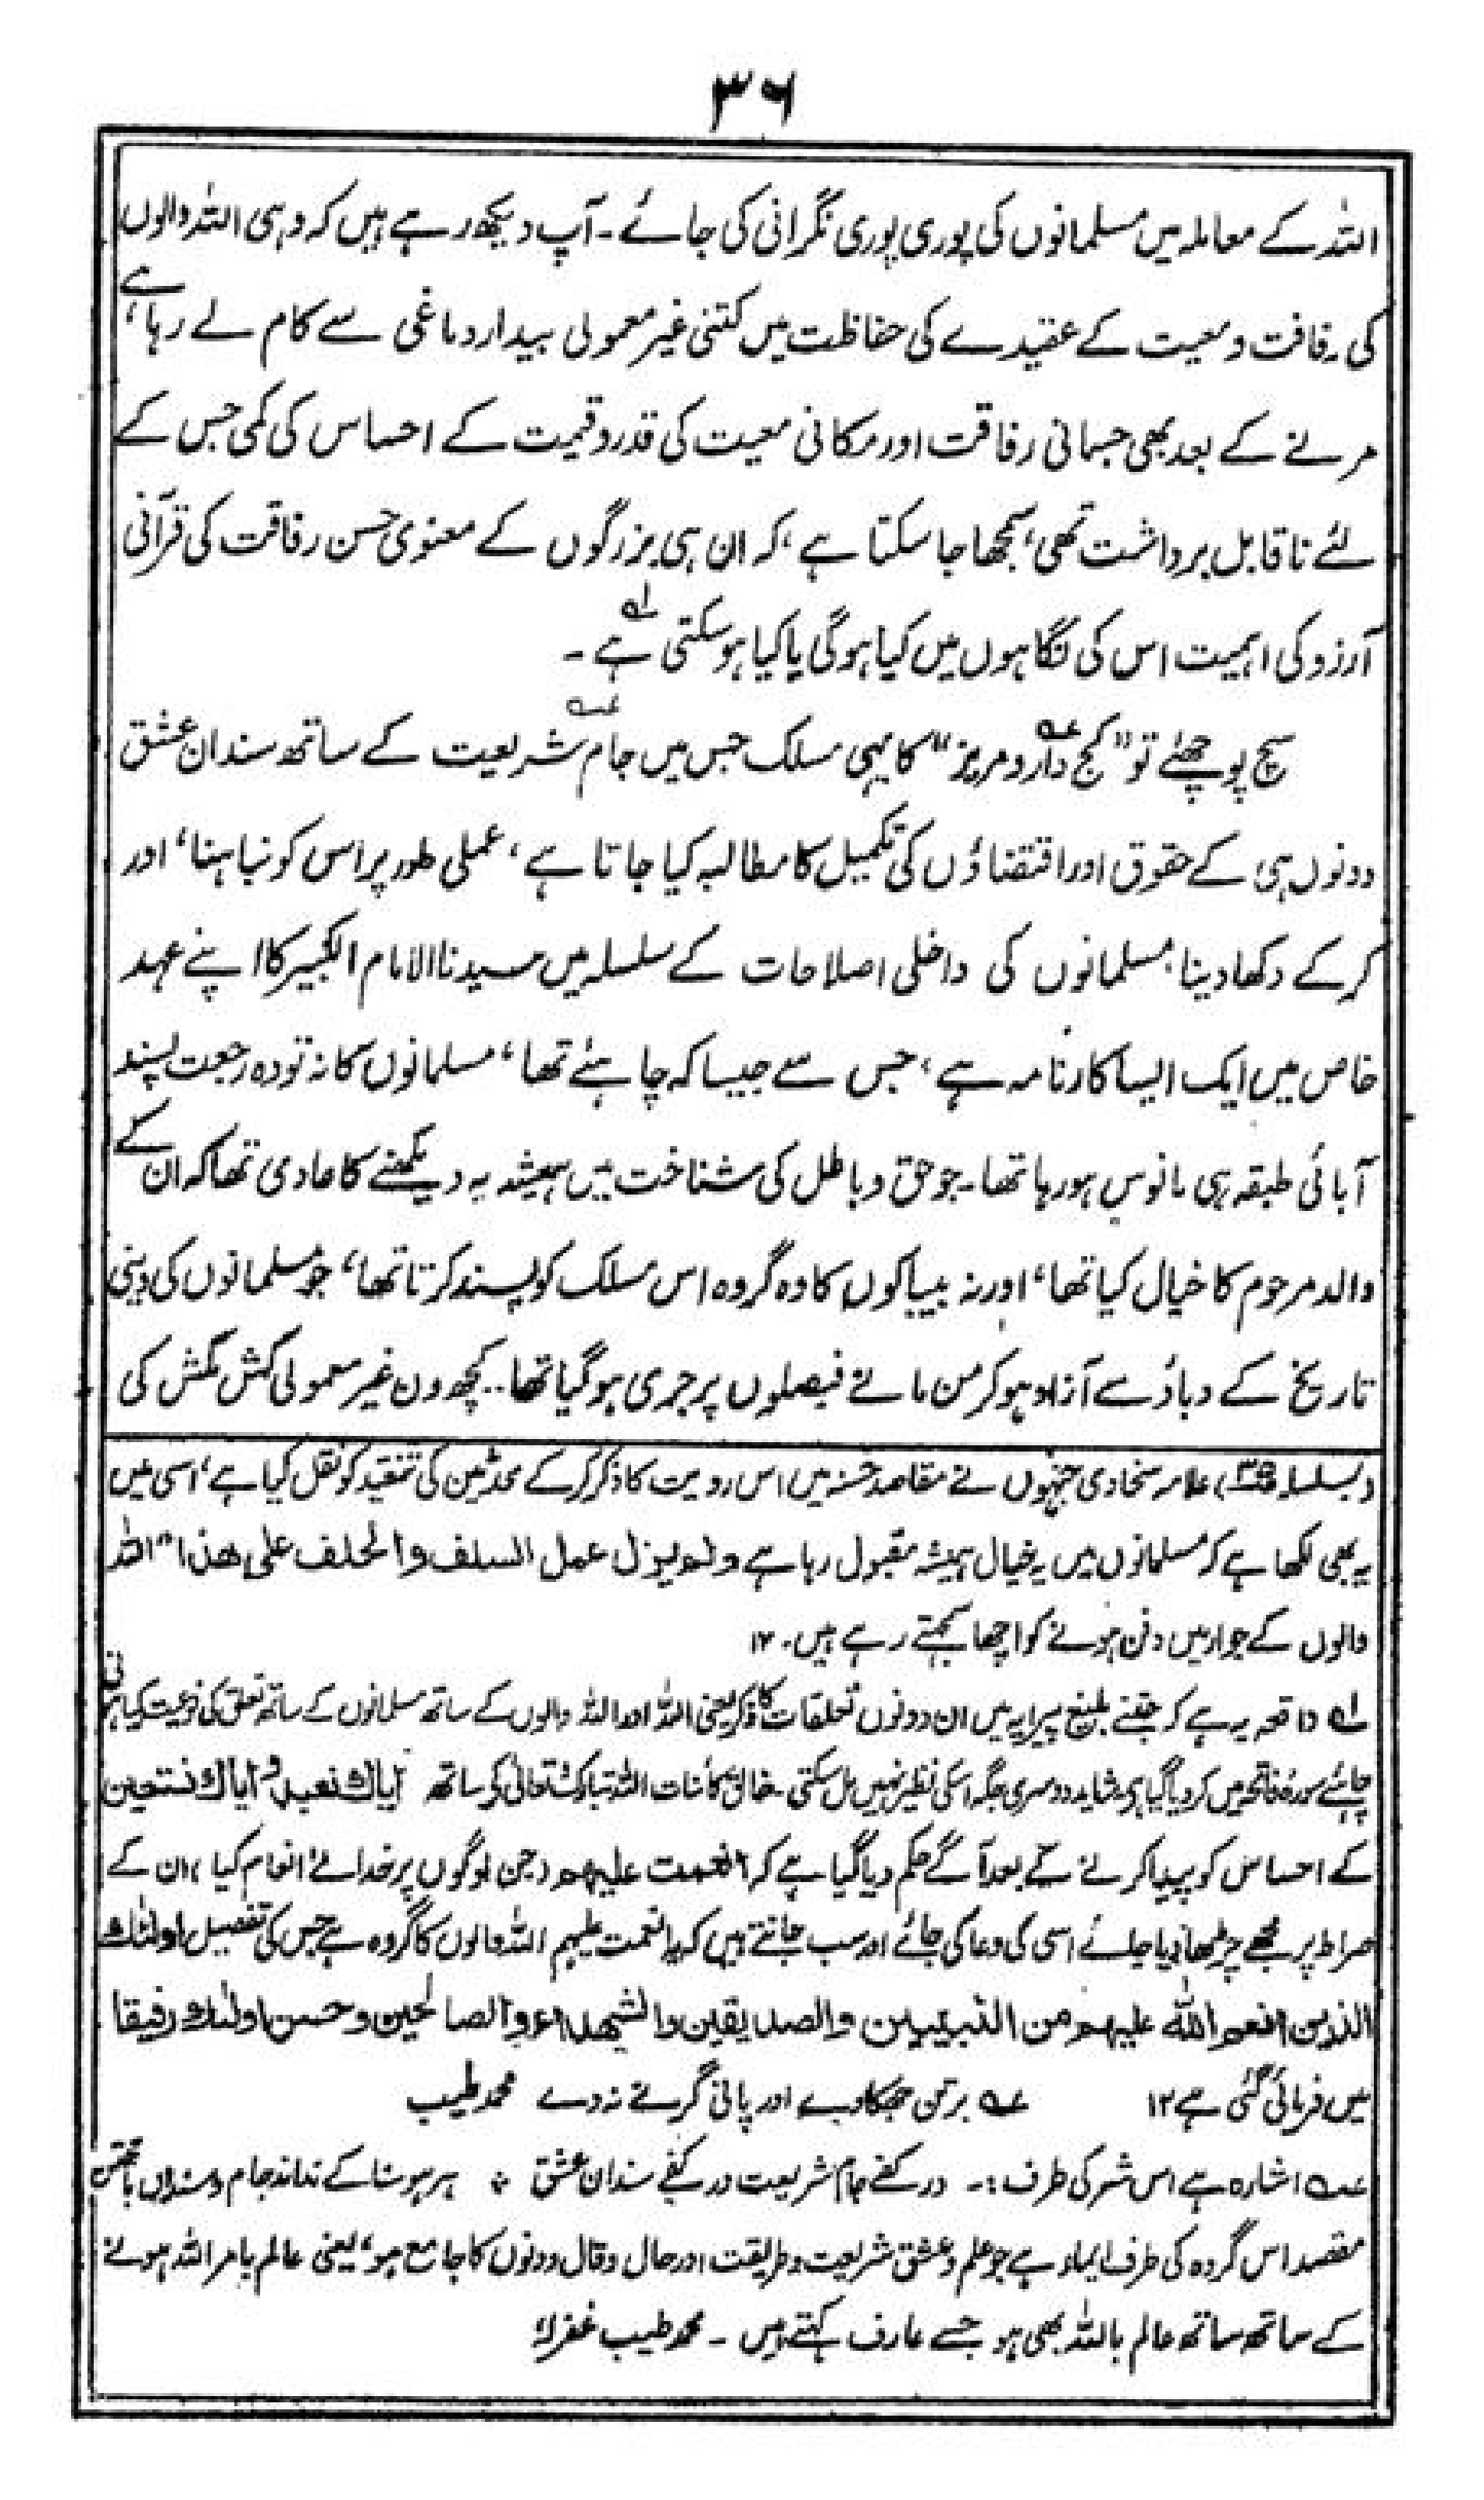 ۳۶
اللہ کے معاملہ میں مسلمانوں کی پوری پوری نگرانی کی جائے۔ آپ دیکھ رہے ہیں کہ وہی اللہ والوں
کی رفاقت و معیت کے عقیدے کی حفاظت میں کتنی غیر معمولی بیدار دماغی سے کام لے رہا ہے،
مرنے کے بعد بھی جسمانی رفاقت اور مکانی معیت کی قدر و قیمت کے احساس کی کمی جس کے
لئے ناقابل برداشت تھی، سمجھا جا سکتا ہے، کہ ان ہی بزرگوں کے معنوی حسن رفاقت کی قرآنی
آرزو کی اہمیت اس کی نگاہوں میں کیا ہوگی یا کیا ہو سکتی ہے ؎۱۔
سچ پوچھئے تو "کج دار و مریز" کا یہی مسلک جس میں جام شریعت کے ساتھ سندان عشق
دونوں ہی کے حقوق اور اقتضاؤں کی تکمیل کا مطالبہ کیا جاتا ہے، عملی طور پر اس کو نباہنا، اور
کر کے دکھا دینا، مسلمانوں کی داخلی اصلاحات کے سلسلہ میں سیدنا الامام الکبیر کا اپنے عہد
خاص میں ایک ایسا کارنامہ ہے، جس سے جیسا کہ چاہئے تھا، مسلمانوں کا نہ تو وہ رجعت پسند
آبائی طبقہ ہی مانوس ہو رہا تھا۔ جو حق و باطل کی شناخت میں ہمیشہ یہ دیکھنے کا عادی تھا کہ ان کے
والد مرحوم کا خیال کیا تھا، اور نہ بیباکوں کا وہ گروہ اس مسلک کو پسند کرتا تھا، جو مسلمانوں کی دینی
تاریخ کے دباؤ سے آزاد ہو کر من مانے فیصلوں پر جری ہو گیا تھا۔۔ کچھ دن غیر معمولی کش مکش کی
(بسلسلہ ۳۵) علامہ سخاوی جنہوں نے مقاصد حسنہ میں اس روایت کا ذکر کر کے محدثین کی تنقید کو نقل کیا ہے، اسی میں
یہ بھی لکھا ہے کہ مسلمانوں میں یہ خیال ہمیشہ مقبول رہا ہے ولم یزل عمل السلف والخلف علی ھذا" اللہ
والوں کے جوار میں دفن ہونے کو اچھا سمجھتے رہے ہیں۔ ۱۲
؎۱ واقعہ یہ ہے کہ جتنے بلیغ پیرایہ میں ان دونوں تعلقات کا ذکر یعنی اللہ اور اللہ والوں کے ساتھ مسلمانوں کے ساتھ تعلق کی نوعیت کیا ہونی
چاہئے سورۂ فاتحہ میں کر دیا گیا ہے، شاید دوسری جگہ اسکی نظیر نہیں مل سکتی۔ خالق کائنات اللہ تبارک و تعالیٰ کے ساتھ ایاك نعبد و ایاك نستعین
کے احساس کو پیدا کرنے کے بعد آگے حکم دیا گیا ہے کہ انعمت علیہم (جن لوگوں پر خدا نے انعام کیا) ان کے
صراط پر مجھے چڑھا دیا جائے اسی کی دعا کی جائے اور سب جانتے ہیں کہ انعمت علیہم اللہ والوں کا گروہ ہے جس کی تفصیل اولئك
الذین انعم اللہ علیہم من النبیین والصدیقین والشھداء والصالحین وحسن اولئك رفیقا
میں فرمائی گئی ہے ۱۲ عہ برتن جھکا دے اور پانی گرنے نہ دے محمد طیب
عہ اشارہ ہے اس شعر کی طرف:۔ در کفے جام شریعت در کفے سندان عشق ٭ ہر ہوسنا کے نداند جام و سنداں باختن
مقصد اس گروہ کی طرف ایماء ہے جو علم و عشق شریعت و طریقت اور حال و قال دونوں کا جامع ہو، یعنی عالم بامر اللہ ہونے
کے ساتھ ساتھ عالم باللہ بھی ہو جسے عارف کہتے ہیں۔ محمد طیب غفرلہ